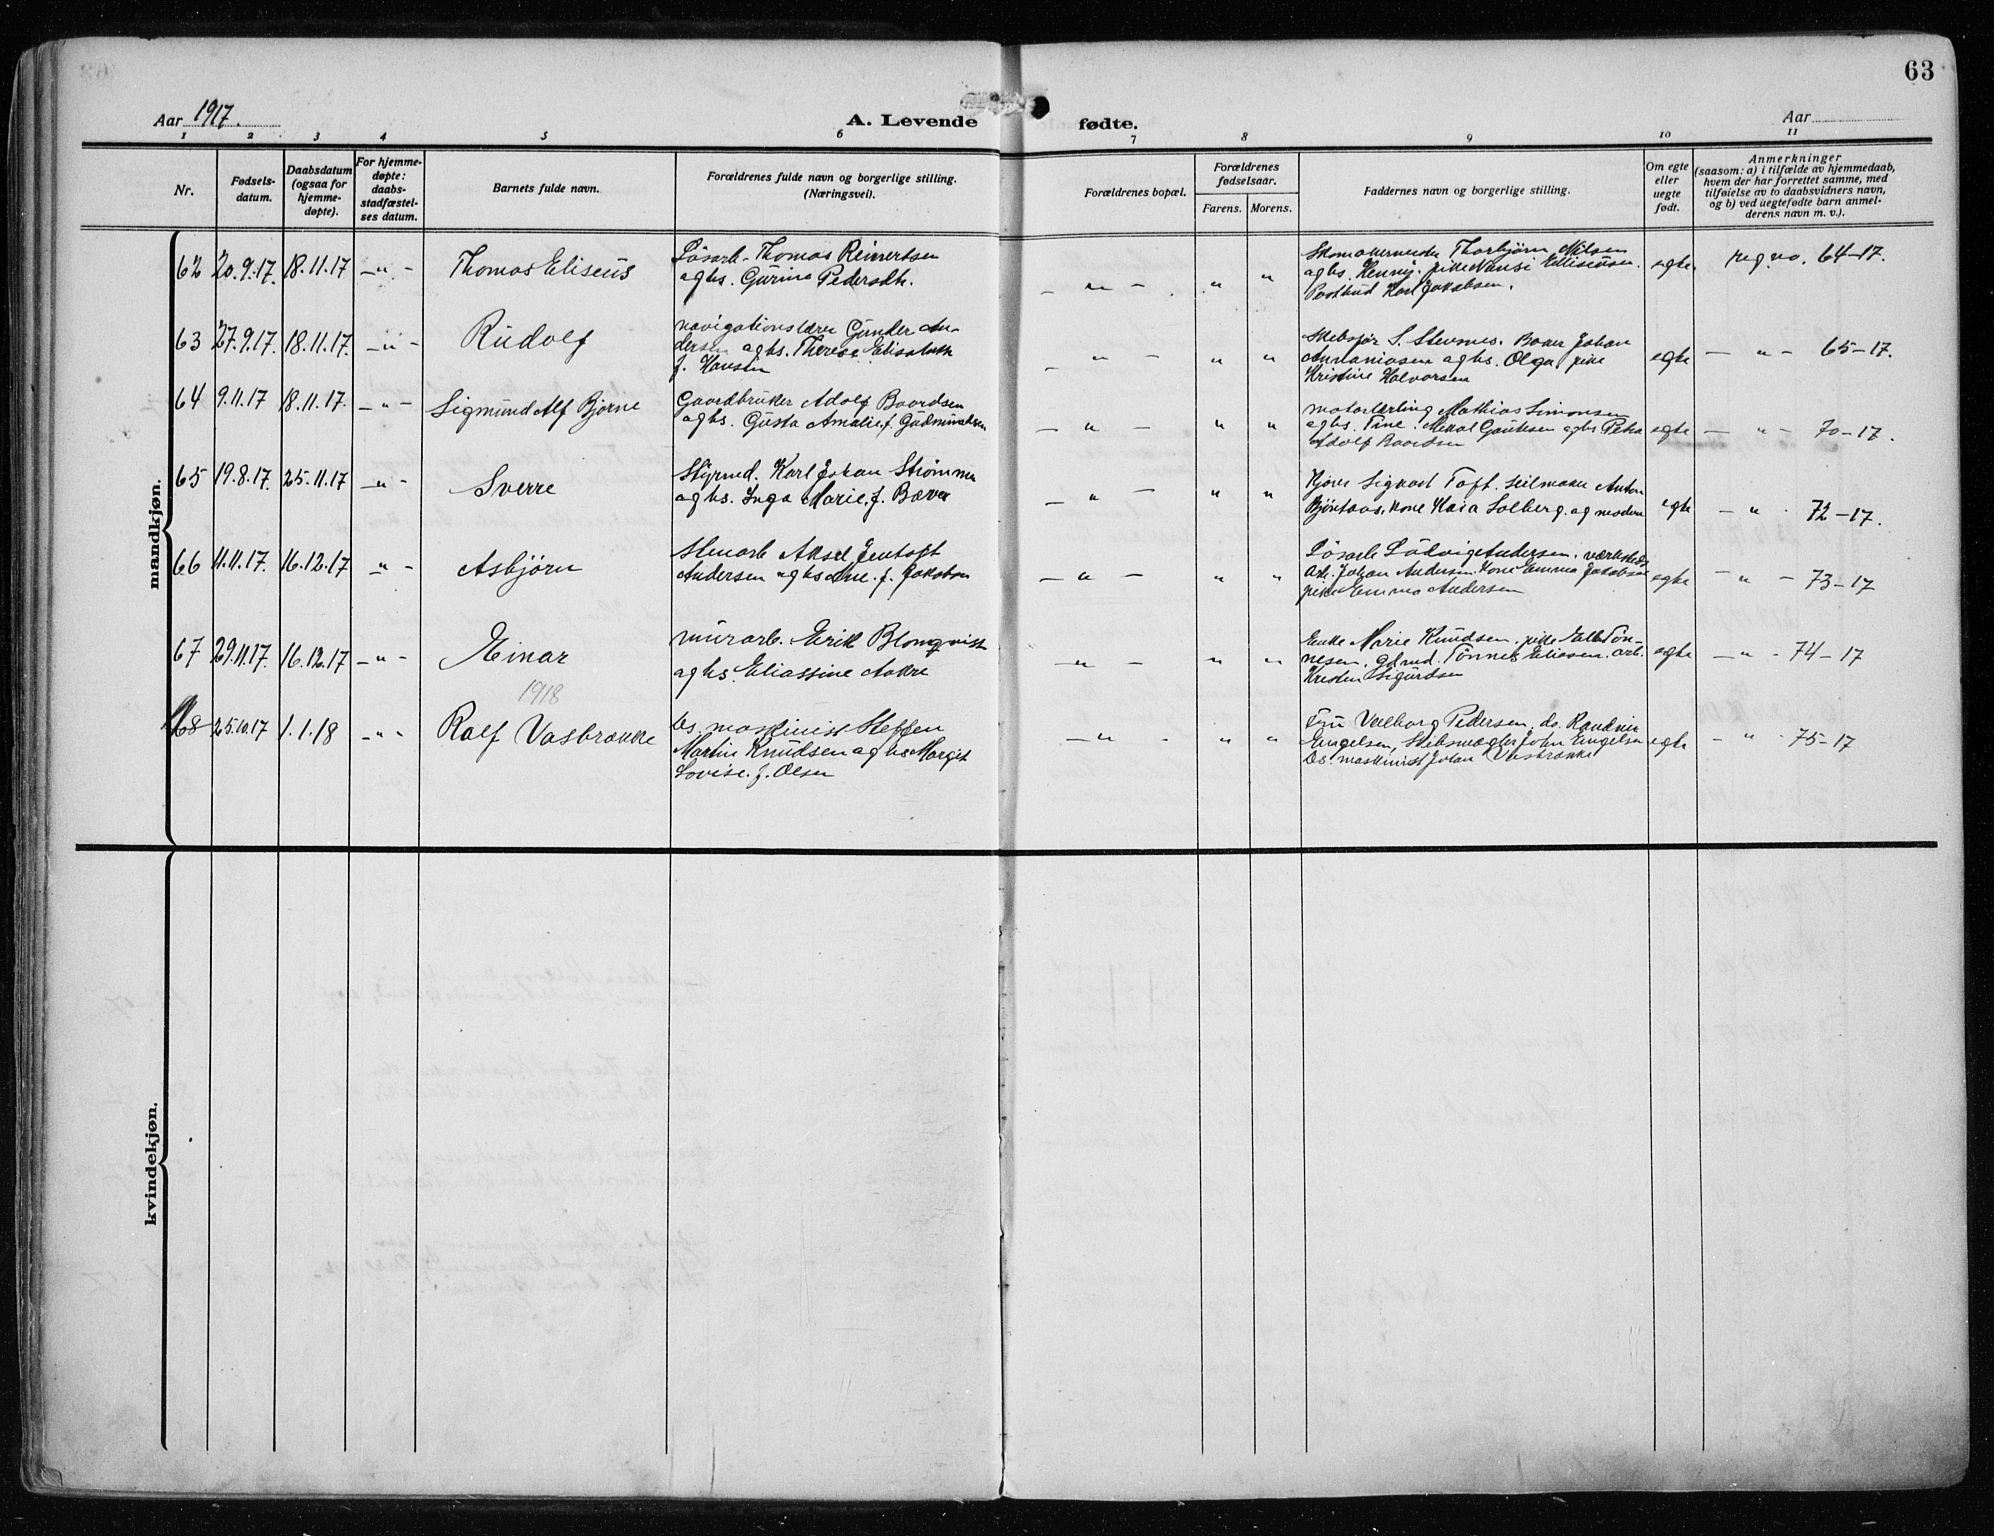 63
Aar 1917.
A. Levende fødte.
Aar
1 2 3 4 5 6 7 8 9 10 11
Nr.
Fødsels-
datum.
Daabsdatum
(ogsaa for
hjemme-
døpte).
For hjemme-
døpte:
daabs-
stadfæstel-
ses datum.
Barnets fulde navn.
Forældrenes fulde navn og borgerlige stilling.
(Næringsvei).
Forældrenes bopæl.
Forældrenes
fødselsaar.
Farens. Morens.
Faddernes navn og borgerlige stilling.
Om egte
eller
uegte
født.
Anmerkninger
(saasom: a) i tilfælde av hjemmedaab,
hvem der har forrettet samme, med
tilføielse av to daabsvidners navn,
og b) ved uegtefødte barn anmel-
derens navn m. v.).
mandkjøn.
62 20.9.17. 18.11.17 —"— Thomas Eliseus
Løsarb. Thomas Reinertsen
aghs. Gurine Pedersdtr.
— " — " "
Thorbjørn Nilsen
aghs. Henny. pike Nansi Elliseusen.
Postbud Karl Jakobsen.
egte reg no. 64-17.
63 27.9.17. 18.11.17. —"— Rudolf
navigationslærer Gunder An-
dersen aghs. Therese Elisabeth
f. Hansen
— " — " "
Skibsfør S. Stevsnes. Johan
aghs. Olga, pike
Kristine Halvorsen
egte — " — 65-17.
64 9.11.17 18.11.17. —"— Sigmund Alf Bjarne
Gaardbruker Adolf Baardsen
aghs. Gusta Amalie f. Gudmundsen
— " — " "
Mathias Simonsen
aghs. Tine. aghs Petra
Adolf Baardsen
egte — " — 70-17.
65 19.8.17. 25.11.17 —"— Sverre
Styrmd. Karl Johan Strømmen
aghs. Inga Marie f. Bæver
— " — " "
Sigvart Toft. seilmaker Anton
kone Kaia Solberg. og modern
egte — " . 72-17.
66 11.11.17. 16.12.17 —"— Asbjørn
Stenarb Aksel Jentoft
Andersen aghs Ane. f. Jakobsen
— " — " "
Løsarb Ludvig Andersen. værksteds
arb. Johan Andersen. kone Emma Jakobsen
pike Emma Andersen
egte — " — 73-17
67 29.11.17. 16.12.17 —"— Einar
murarb. Erik Blomqvist
aghs. Eliassine Aakre
— " — " "
Enke Marie Knudsen. pike Ton-
nesen. Tønnes Eliasen. arb.
Kristen Sigurdsen
egte — " - 74-17
1918
68 25.10.17 1.1.18 —"— Ralf Vasbrække
Ds. maskinist Steffen
Martin Knudsen aghs Margit
Lovise. f. Olsen
— " — " "
Fru Valborg Pedersen, do. Randine
Engelsen, Skibsmægler John Engelsen
Ds. maskinist Johan Vasbrække
egte — " - 75-17
kvindekjøn.